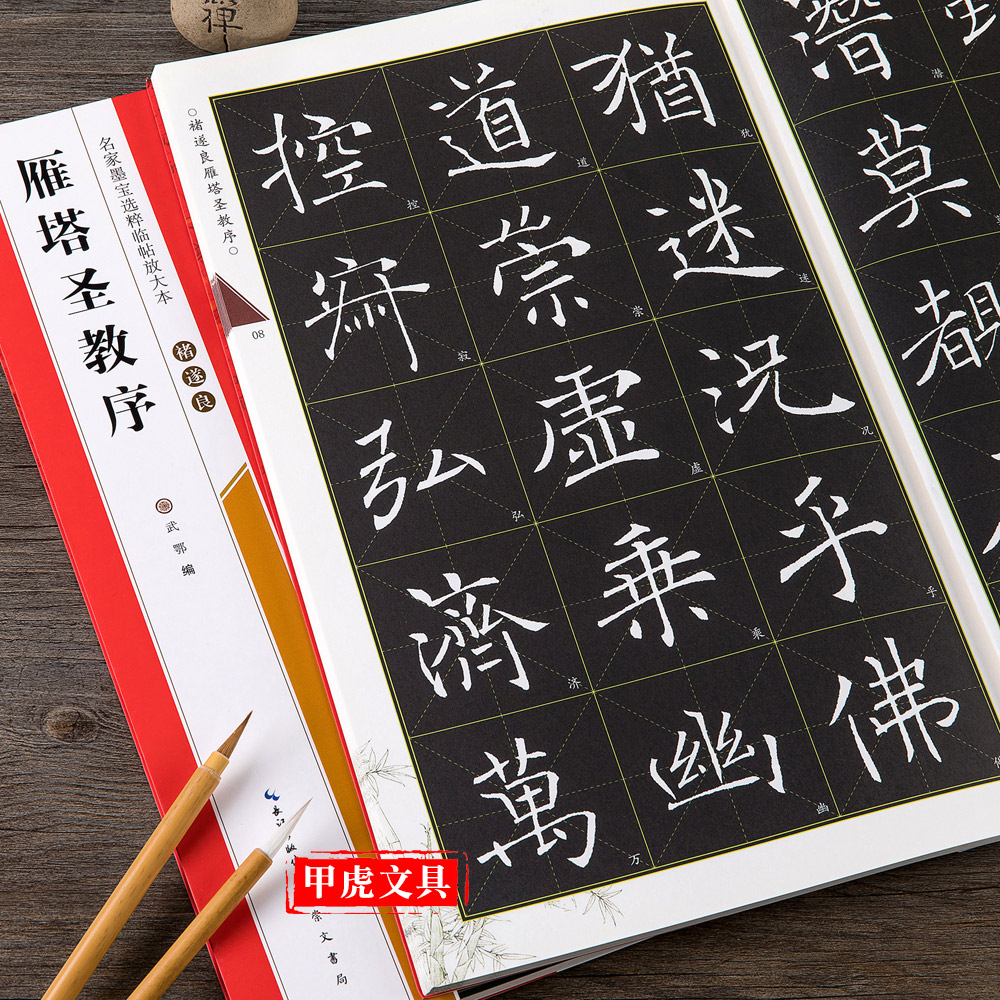 禅
名家墨宝选粹临帖放大本
雁塔圣教序
褚遂良
武鄂编
长江
崇文书局
褚遂良雁塔圣教序
08
潛莫覩
潜
猶迷况乎佛
犹迷况乎
道崇虚乘幽
道崇虚乘幽
控寂弘濟萬
控寂弘济万
甲虎文具